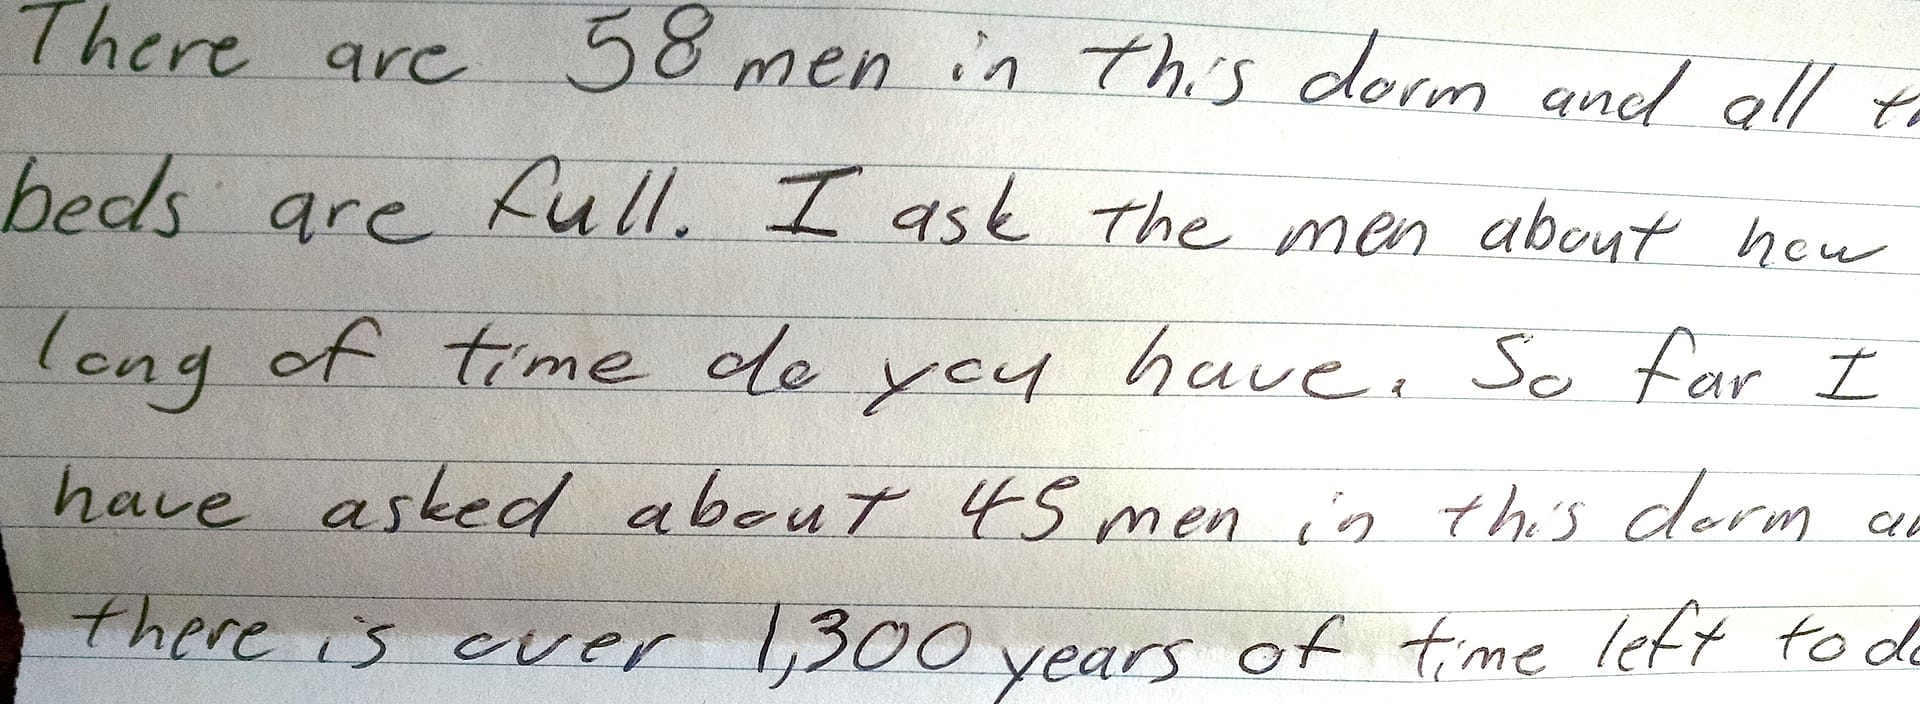 There are 58 men in this dorm and all th
beds are full. I ask the men about how
long of time do you have. So far I
have asked about 45 men in this dorm an
there is over 1,300 years of time left to do